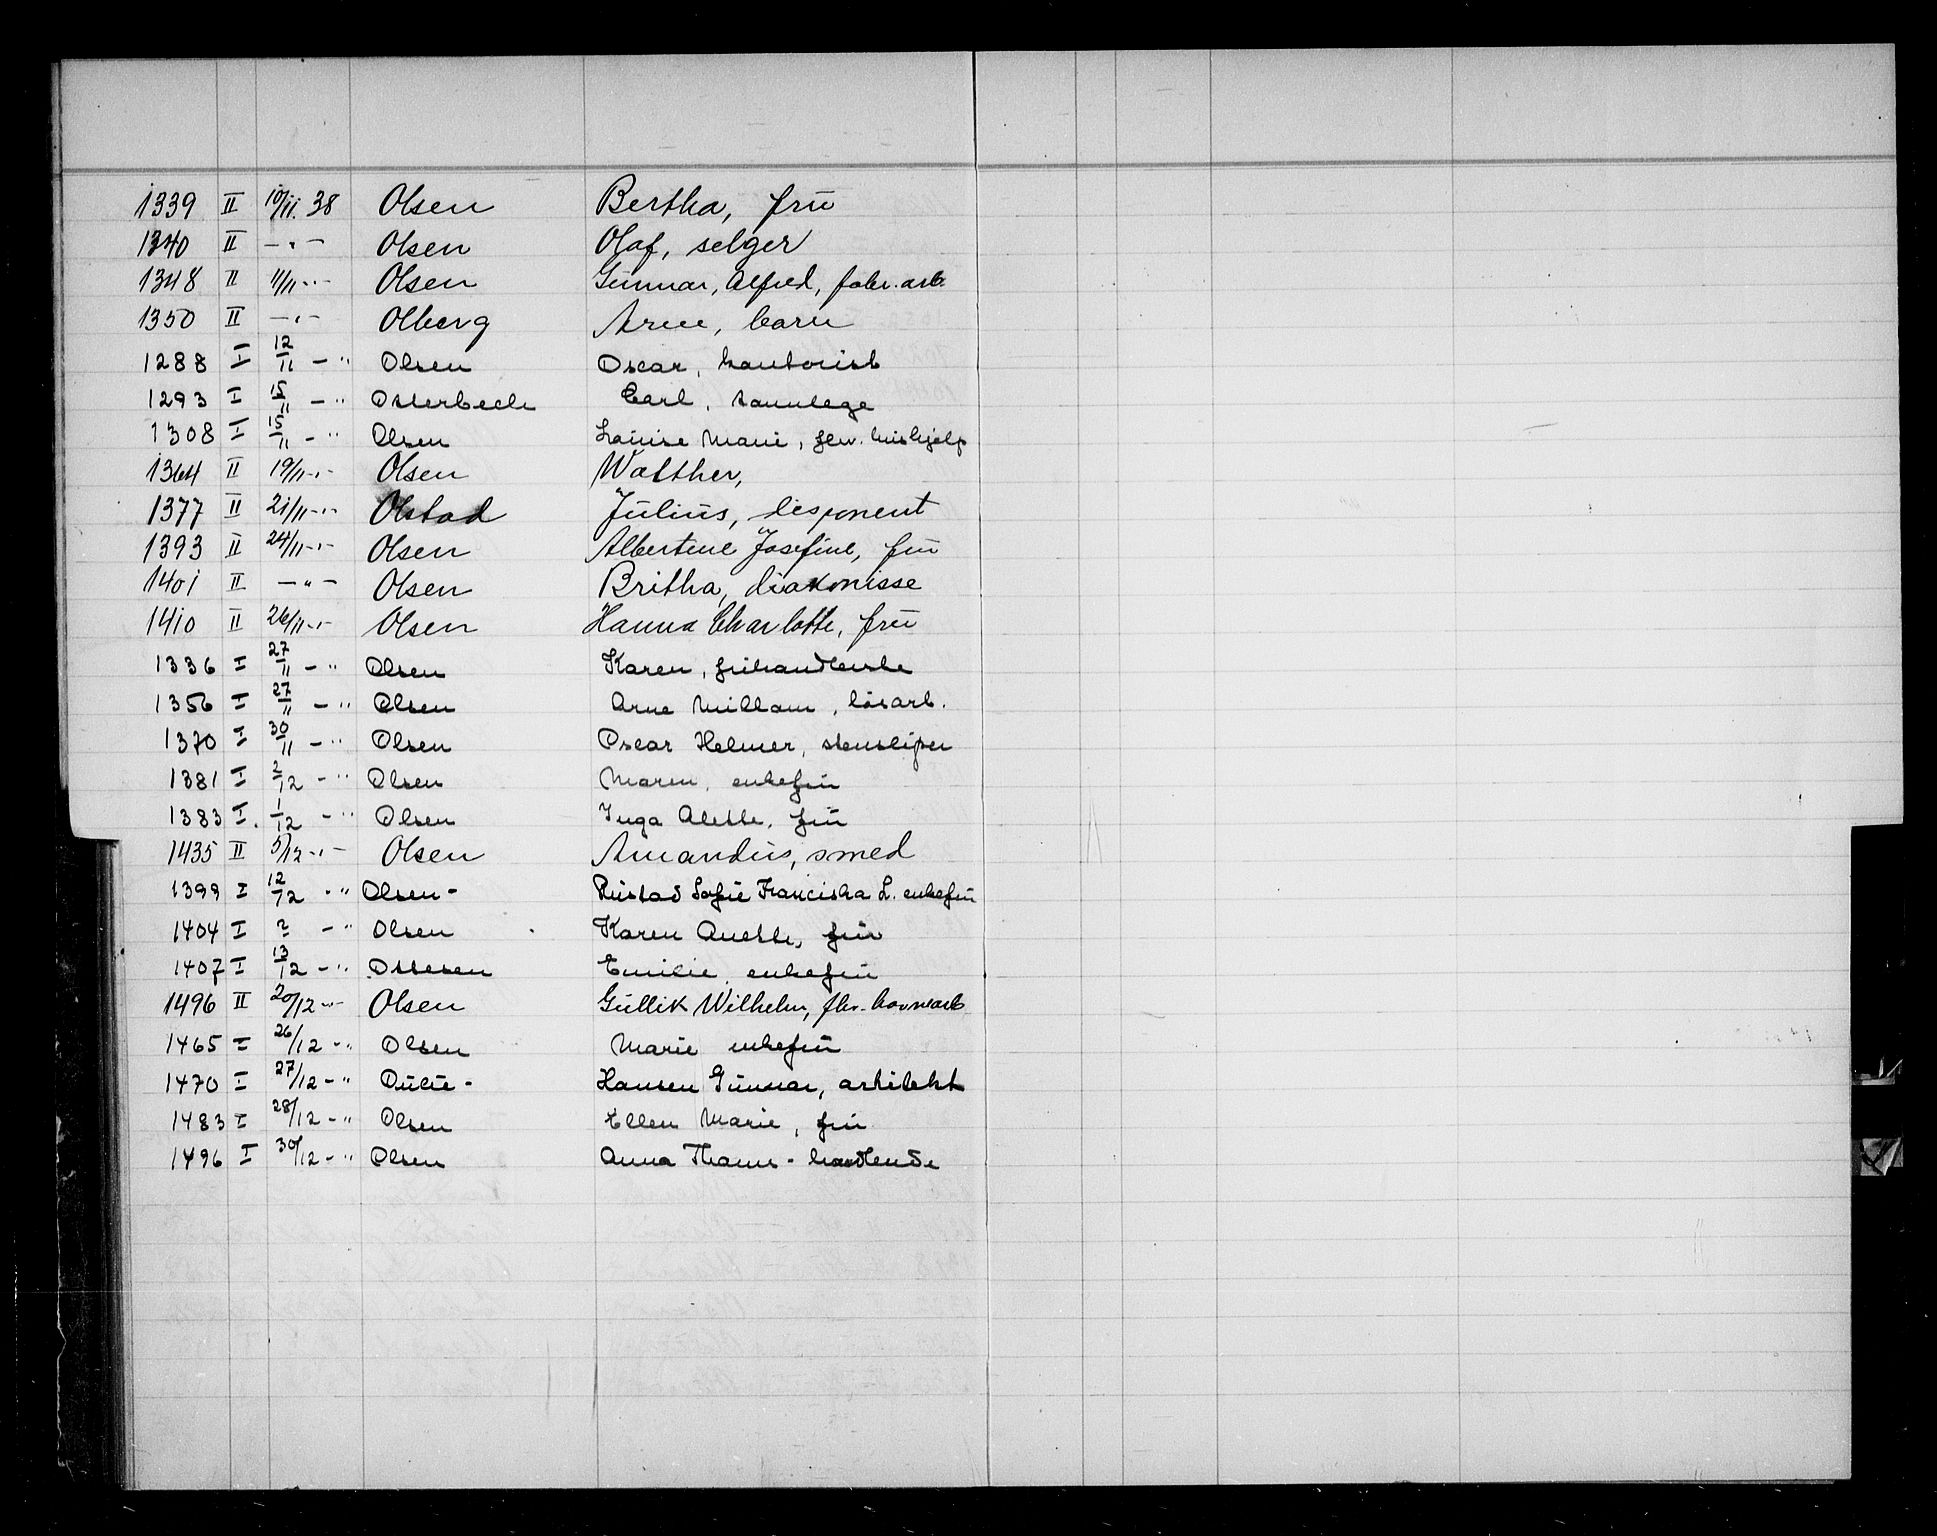 1339 II 10/11. 38 Olsen Bertha, frü
1340 II —〃— Olsen Olaf, selger
1348 II 11/11 -〃- Olsen Günnar, Alfred, fabr. arb.
1350 II —〃— Olberg Arne, barn
1288 I 12/11 — 〃 Olsen Oscar, kontorist
1293 I 15/11 — 〃 Osterbeck Carl, tannlege
1308 I 15/11 — 〃 Olsen Loüise Marie, fhv. hüshjelp
1364 II 19/11 -〃- Olsen Walther,
1377 II 21/11 -〃- Olstad Jülius, disponent
1393 II 24/11 -〃- Olsen Albertine Josefine, frü
1401 II —〃— Olsen Britha, diakonisse
1410 II 26/11 -〃- Olsen Hanna Charlotte, frü
1336 I 27/11 — 〃 Olsen Karen, frühandlerske
1356 I 27/11 — 〃 Olsen Arne William, løsarb.
1370 I 30/11 — 〃 Olsen Oscar Helmer, stensliper
1381 I 2/12 — 〃 Olsen Maren, enkefrü
1383 I. 1/12 — 〃 Olsen Inga Alette, frü
1435 II 5/12 -〃- Olsen Amandüs, smed
1399 I 12/12 - 〃 Olsen- Rüstad Sofie Franciska L. enkefrü
1404 I ? — 〃 Olsen Karen Anette, frü
1407 I 13/12 — 〃 Ottesen Emilie enkefrü
1496 II 20/12 -〃- Olsen Güllik Wilhelm, fhv. havnearb
1465 I 26/12 - 〃 Olsen Marie enkefrü
1470 I 27/12 - 〃 Hansen Günnar, arkitekt
1483 I 28/12 - 〃 Olsen Ellen Marie, frü
1496 I 30/12 - 〃 Olsen Anna - handlende